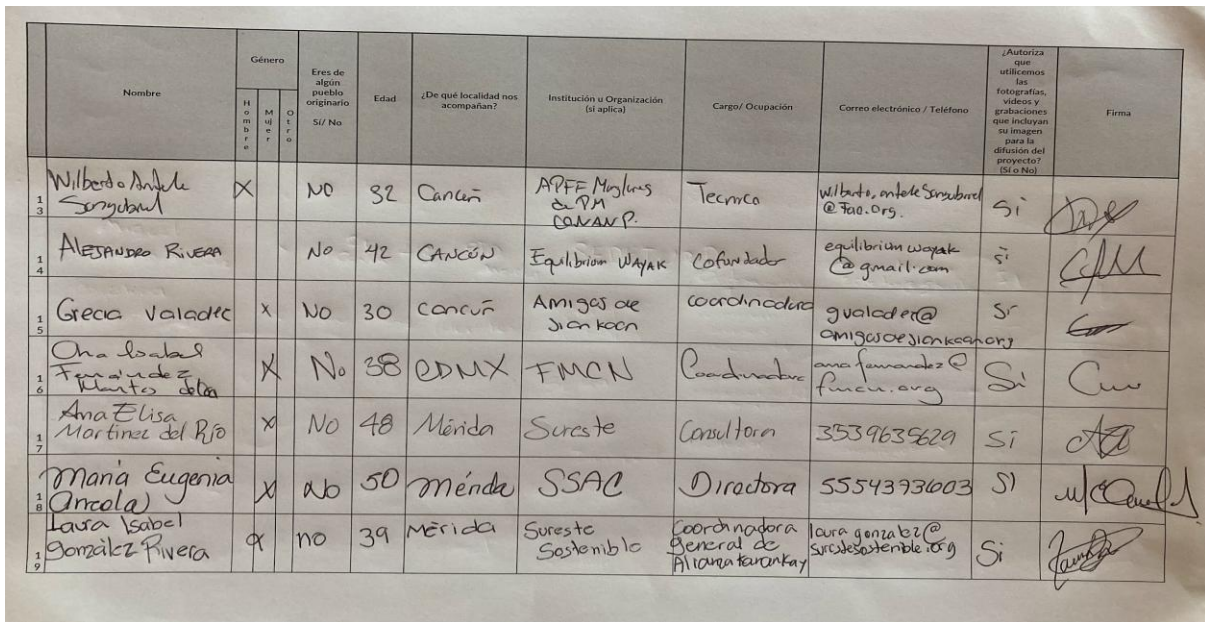 Nombre
Género
Hombre
Mujer
Otro
Eres de
algún
pueblo
originario
Sí/ No
Edad
¿De qué localidad nos
acompañan?
Institución u Organización
(si aplica)
Cargo/ Ocupación
Correo electrónico / Teléfono
¿Autoriza
que
utilicemos
las
fotografías,
videos y
grabaciones
que incluyan
su imagen
para la
difusión del
proyecto?
(Sí o No)
Firma
13
Wilberto Antele
X
NO
32
Cancún
APFF
CONANP.
Tecnico
@fao.org.
Si
14
ALEJANDRO RIVERA
No
42
CANCÚN
Equilibrium WAYAK
Cofundador
equilibrium wayak
@gmail.com
si
15
Grecia Valadez
X
NO
30
Cancún
Amigos de
Sian kaan
coordinadora
gvaladez@
amigosdesiankaan.org
Si
16
Ana Isabel
Fernández
Montes de Oca
X
No
38
CDMX
FMCN
Coordinadora
ana.fernandez@
fmcn.org
Si
17
Ana Elisa
Martínez del Río
X
NO
48
Mérida
Sureste
Consultora
3539635629
Sí
18
María Eugenia
X
No
50
Mérida
SSAC
Directora
5554393603
SI
19
Laura Isabel
González Rivera
X
no
39
Mérida
Sureste
Sostenible
Coordinadora
General de
laura.gonzalez@
surestesostenible.org
Si